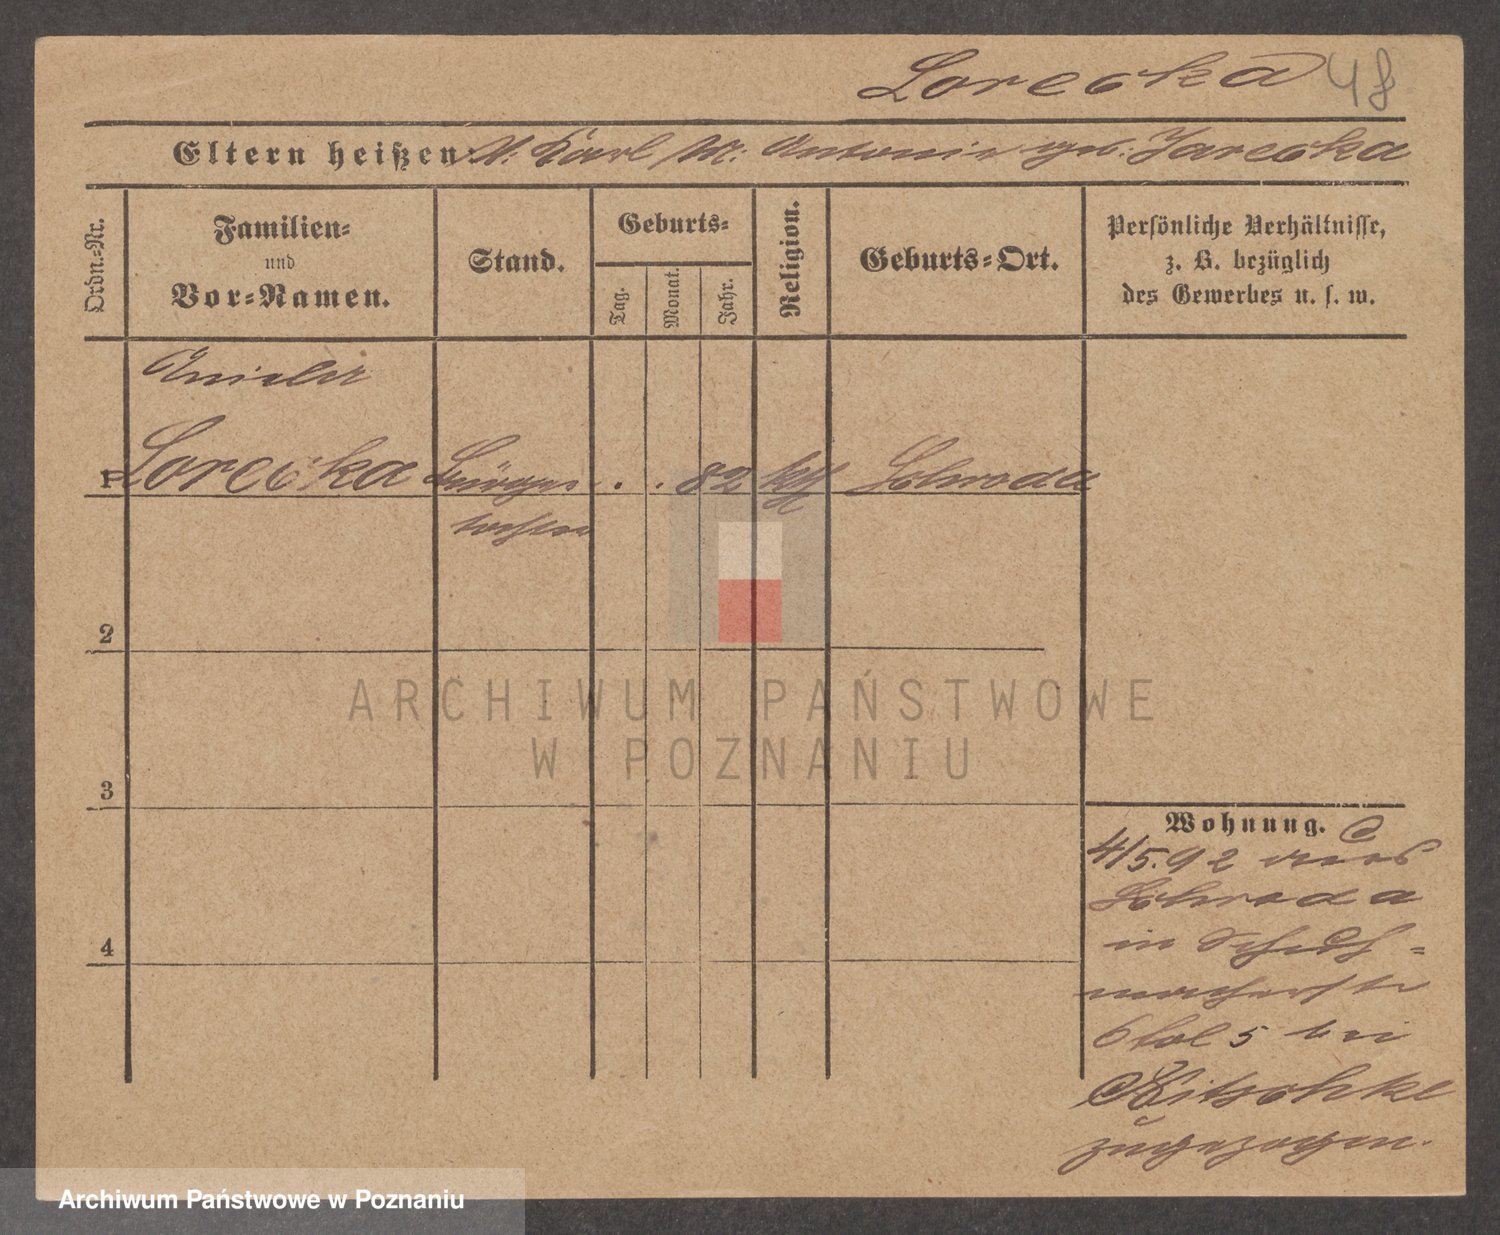 Lorecka 48
Eltern heißen: V. Karl M: Antonie geb. Jarecka
Ordn.-Nr.
Familien-
und
Vor-Namen.
Stand.
Geburts-
Tag.
Monat.
Jahr.
Religion.
Geburts-Ort.
Persönliche Verhältnisse,
z. B. bezüglich
des Gewerbes u. s. w.
1 Lorecka . . 82 kth Schroda
2
3
4
Wohnung.
4/5.92 aus
Schroda
in Schuh=
macherstr
bei
Nitschke
zugezogen.
ARCHIWUM PAŃSTWOWE
W POZNANIU
Archiwum Państwowe w Poznaniu